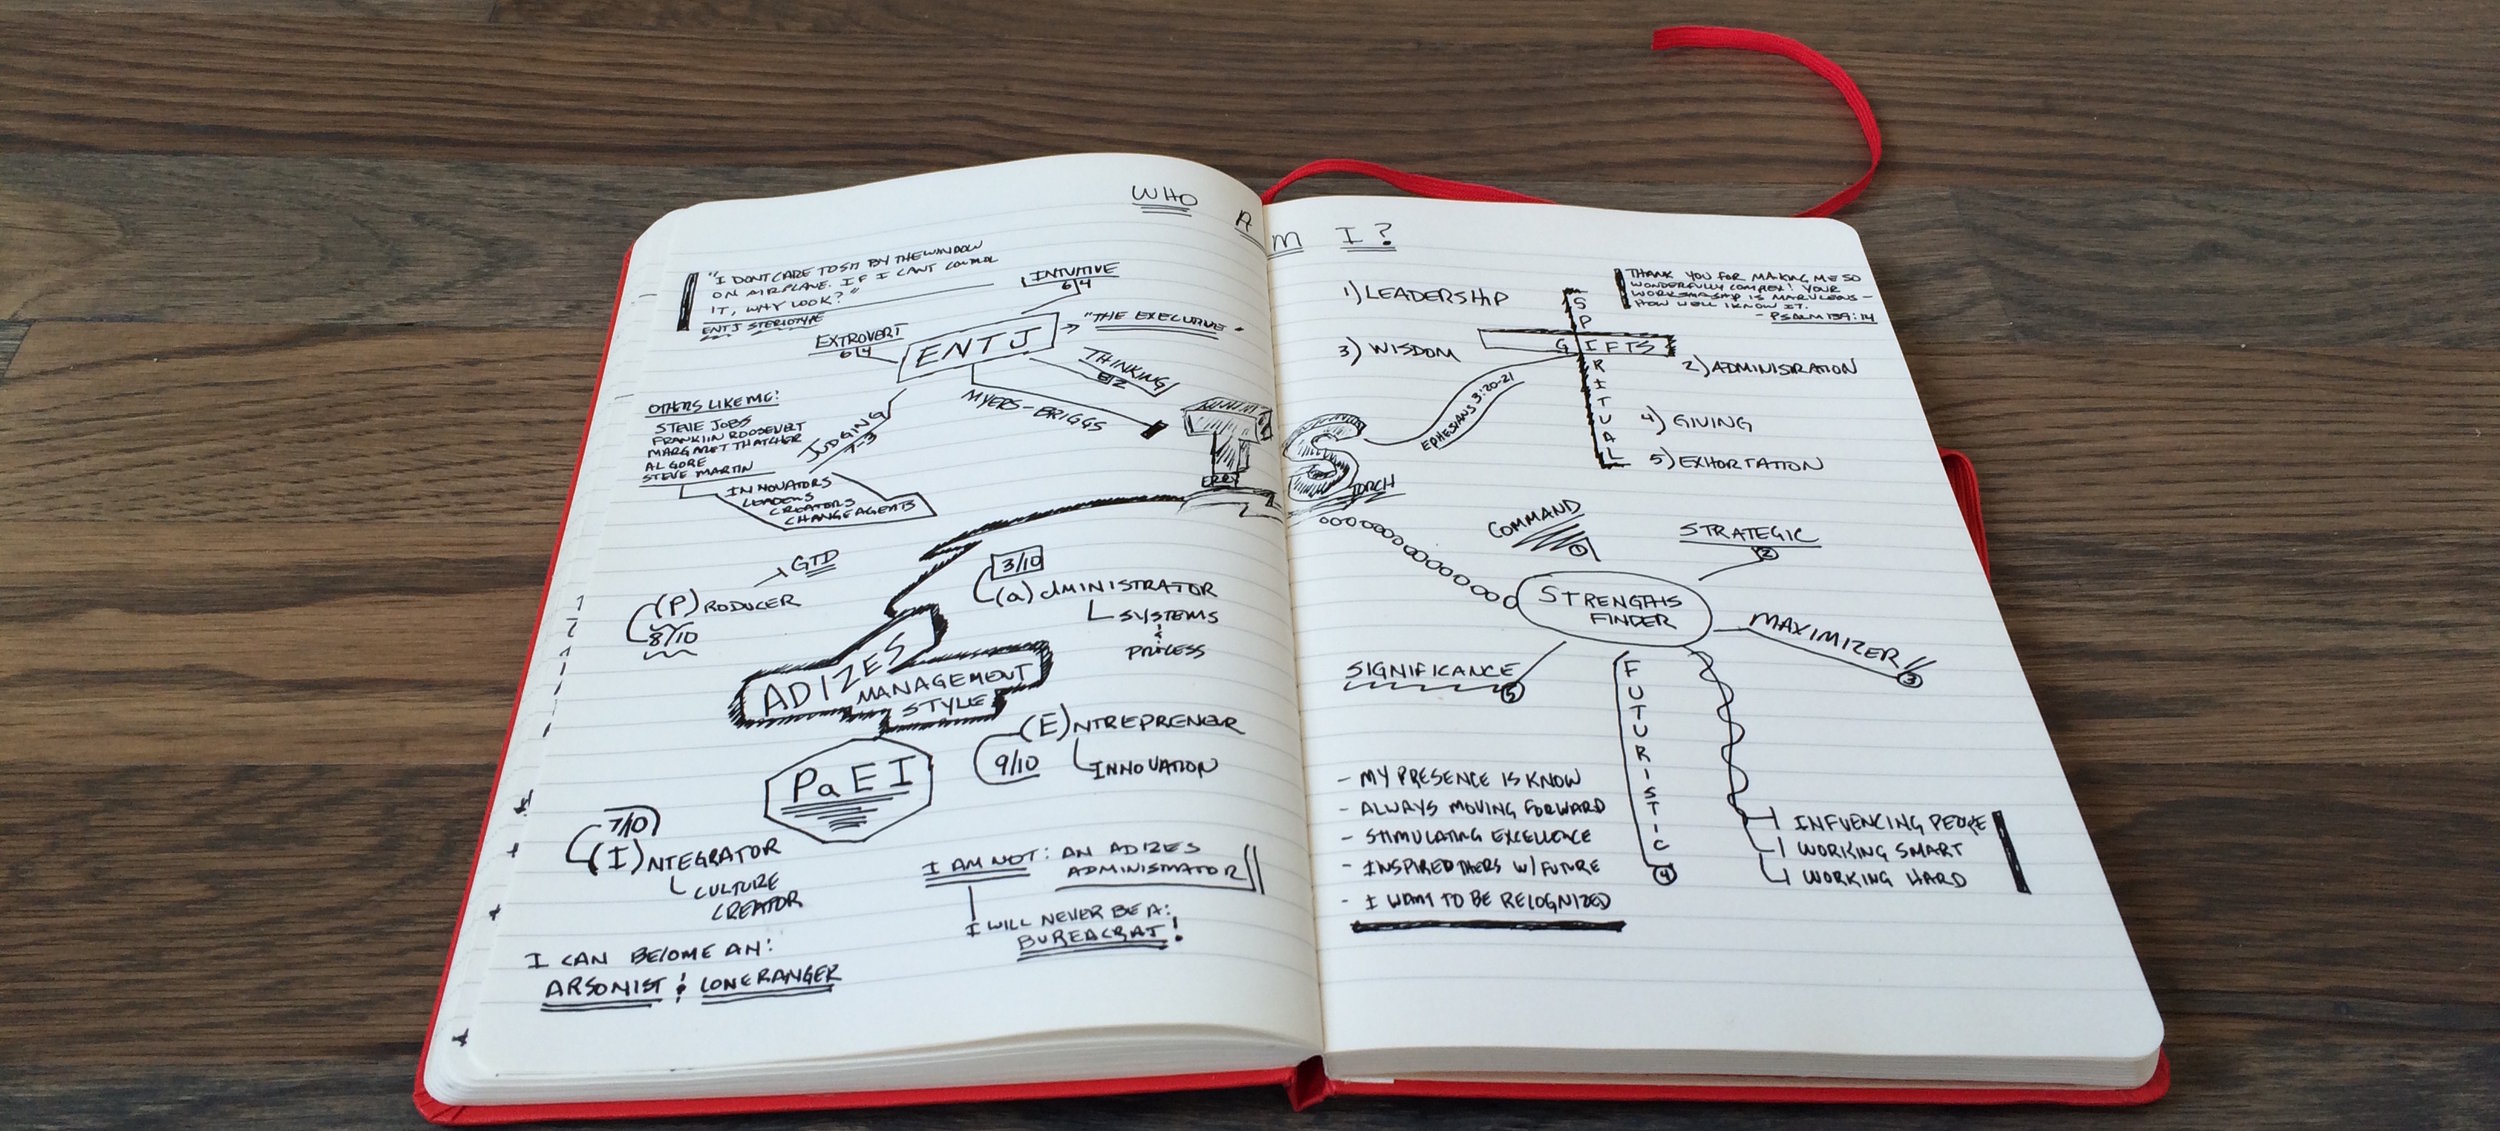 WHO AM I?
"I DONT CARE TO SIT BY THE WINDOW
ON AIRPLANE. IF I CANT CONTROL
IT, WHY LOOK?"
ENTJ STERIOTYPE
INTUITIVE
6/4
EXTROVERT
6/4
ENTJ
"THE EXECUTIVE"
THINKING
8/2
MYERS-BRIGGS
JUDGING
7-3
OTHERS LIKE ME:
STEVE JOBS
FRANKLIN ROOSEVERT
MARGARET THATCHER
AL GORE
STEVE MARTIN
INNOVATORS
LEADERS
CREATORS
CHANGE AGENTS
T S
ERRY
TORCH
GTD
(P)RODUCER
8/10
3/10
(a)dMINISTRATOR
SYSTEMS
&
PROCESS
ADIZES
MANAGEMENT
STYLE
PaEI
(E)NTREPRENEUR
9/10
INNOVATION
7/10
(I)NTEGRATOR
CULTURE
CREATOR
I AM NOT: AN ADIZES
ADMINISTRATOR
I WILL NEVER BE A:
BUREACRAT!
I CAN BECOME AN:
ARSONIST & LONERANGER
1) LEADERSHIP
3) WISDOM
SPIRITUAL
GIFTS
THANK YOU FOR MAKING ME SO
WONDERFULLY COMPLEX! YOUR
WORKSMASHIP IS MARVLEOUS-
HOW WELL I KNOW IT.
- PSALM 139:14
2) ADMINISTRATION
4) GIVING
5) EXHORTATION
EPHESIANS 3:20-21
COMMAND
1
STRATEGIC
2
STRENGTHS
FINDER
MAXIMIZER!!
3
SIGNIFICANCE
5
FUTURISTIC
4
- MY PRESENCE IS KNOW
- ALWAYS MOVING FORWARD
- STIMULATING EXCELLENCE
- INSPIRE OTHERS W/ FUTURE
- I WANT TO BE RECOGNIZED
INFUENCING PEOPLE
WORKING SMART
WORKING HARD